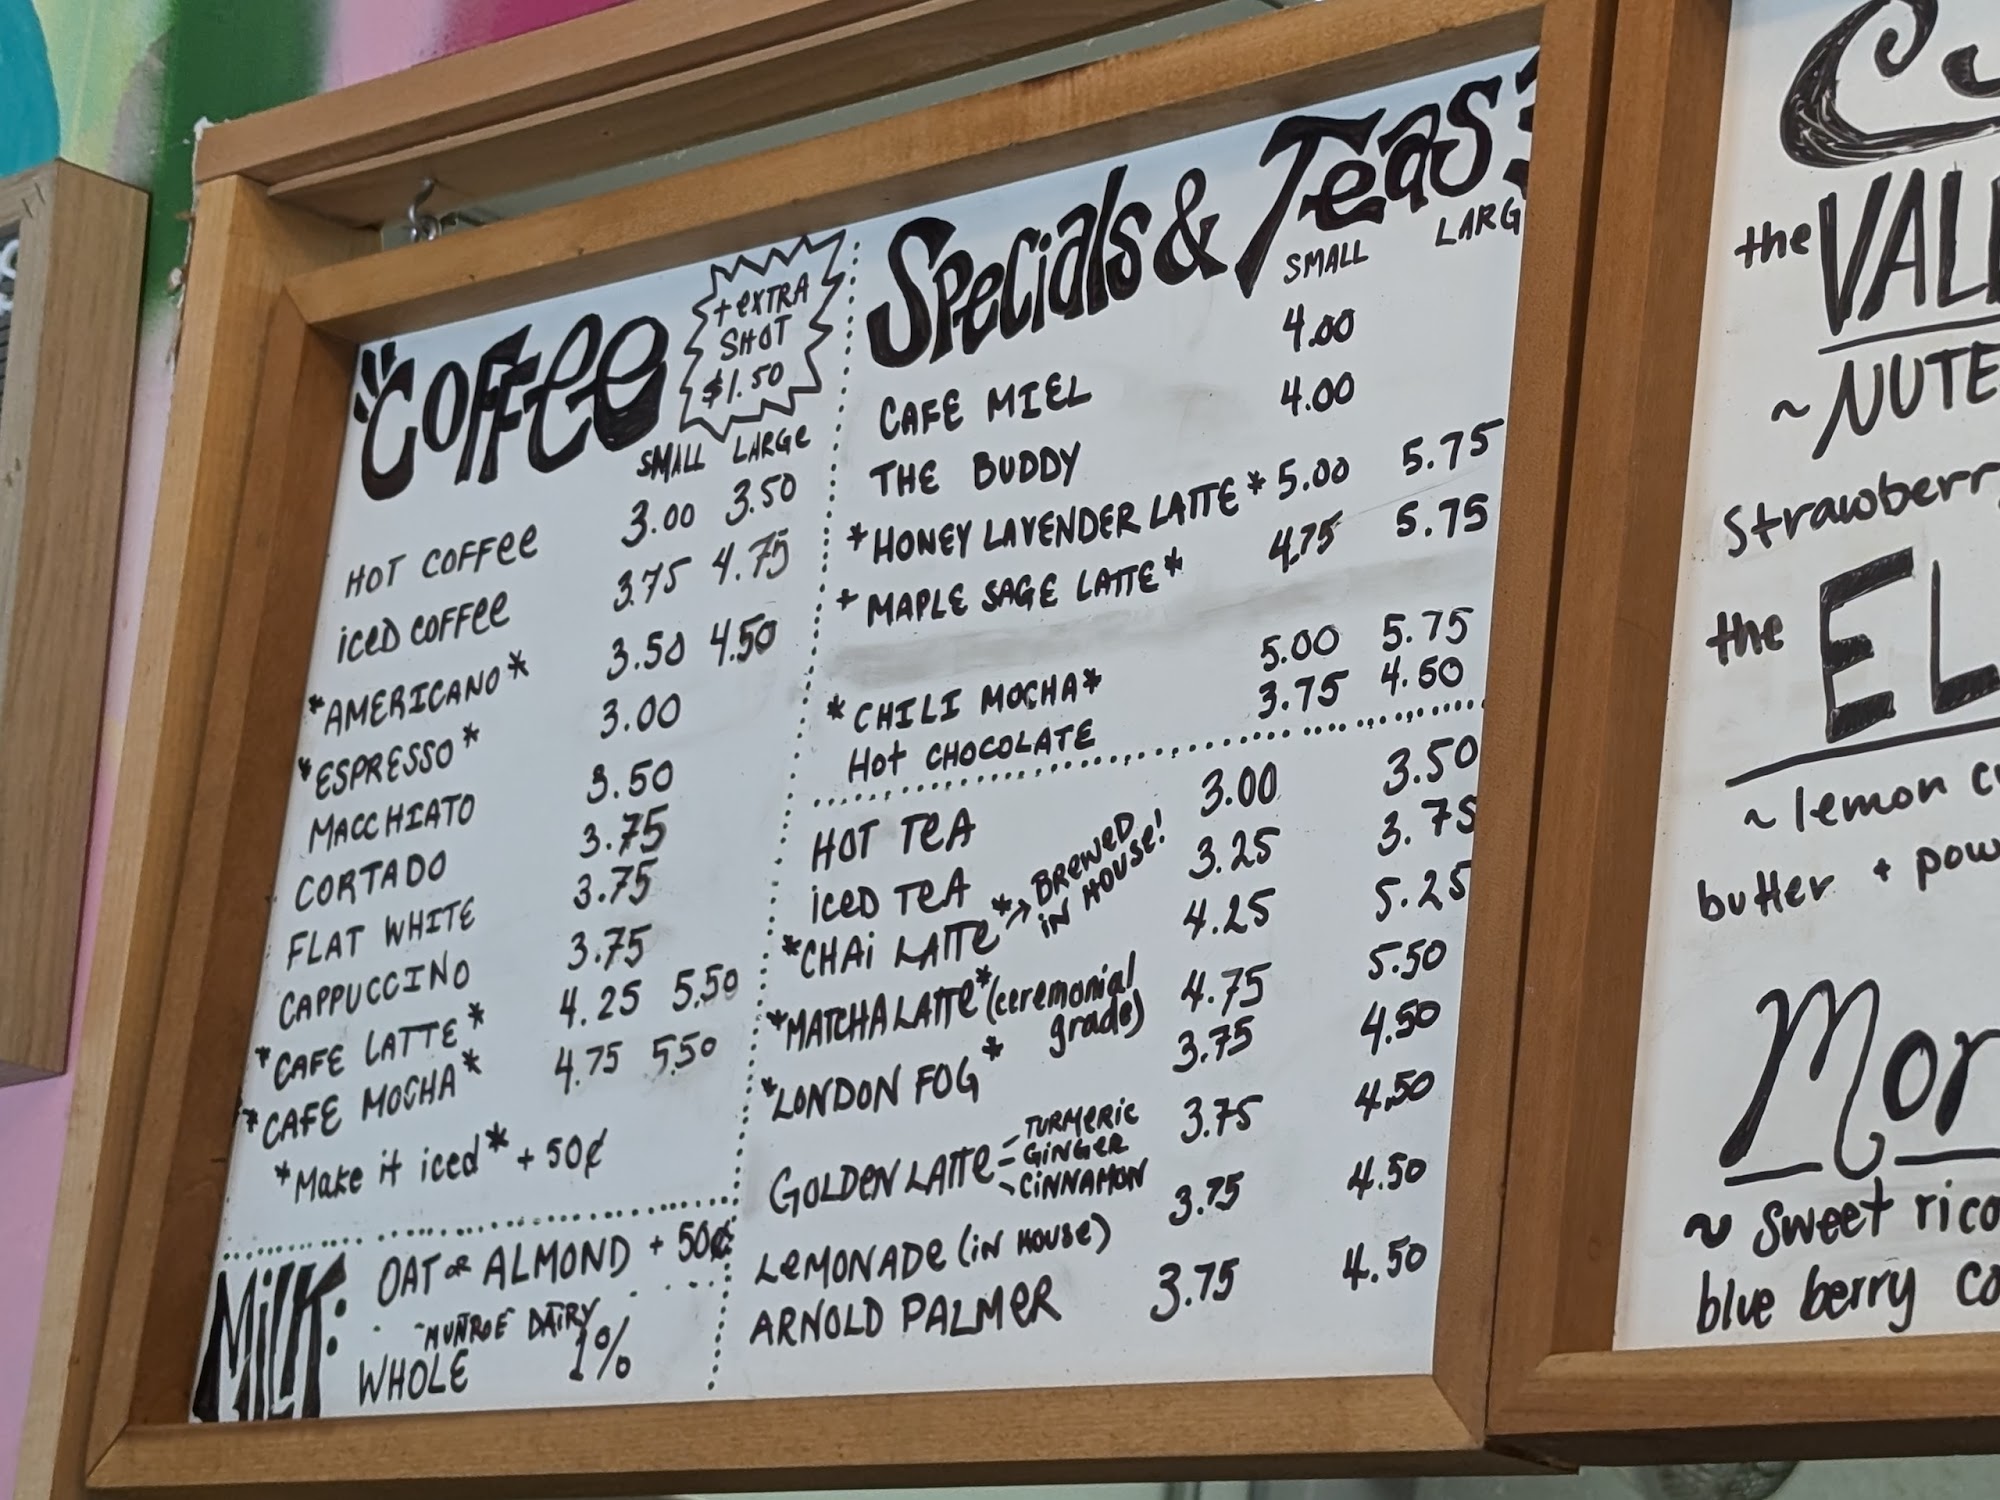 COFFEE
+ EXTRA
SHOT
$1.50
SMALL LARGE
HOT COFFEE 3.00 3.50
ICED COFFEE 3.75 4.75
*AMERICANO* 3.50 4.50
*ESPRESSO* 3.00
MACCHIATO 3.50
CORTADO 3.75
FLAT WHITE 3.75
CAPPUCCINO 3.75
*CAFE LATTE* 4.25 5.50
*CAFE MOCHA* 4.75 5.50
*Make it iced* + 50¢
MILK: OAT OR ALMOND + 50¢
~MUNROE DAIRY
WHOLE 1%
Specials & Teas
SMALL LARG
CAFE MIEL 4.00
THE BUDDY 4.00
*HONEY LAVENDER LATTE* 5.00 5.75
*MAPLE SAGE LATTE* 4.75 5.75
*CHILI MOCHA* 5.00 5.75
Hot CHOCOLATE 3.75 4.50
HOT TEA 3.00 3.50
ICED TEA 3.25 3.75
*CHAI LATTE* → BREWED IN HOUSE! 4.25 5.25
*MATCHA LATTE* (ceremonial grade) 4.75 5.50
*LONDON FOG* 3.75 4.50
GOLDEN LATTE - TURMERIC 3.75 4.50
- GINGER
- CINNAMON
LEMONADE (IN HOUSE) 3.75 4.50
ARNOLD PALMER 3.75 4.50
the VAL
~ NUTE
Strawberry
the EL
~ lemon c
butter + pow
Mor
~ sweet rico
blue berry co